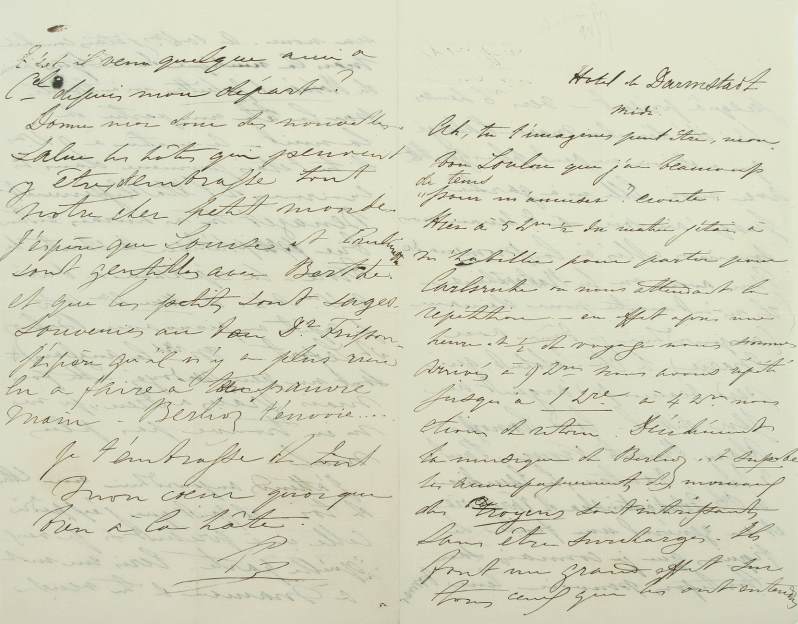 Est-il venu quelque ami à
C^el depuis mon départ?
Donne moi donc des nouvelles.
Salue les hôtes qui peuvent
y être, embrasse tout
notre cher petit monde.
J'espère que Louise et
sont gentilles avec Berthe.
et que les petits sont sages.
Souvenirs au bon D^r Frisson.
J'espère qu'il n'y a plus rien
eu à faire à ta pauvre
main - Berlioz t'envoie....
Je t'embrasse de tout
mon coeur quoique
bien à la hâte.
P
Hotel de Darmstadt
midi
Ah, tu t'imagines peut être, mon
bon Loulou que j'ai beaucoup
de tems
"pour m'amuser"? écoute.
Hier à 5 h½ du matin j'étais à
m'habiller pour partir pour
Carlsruhe où nous attendait la
répétition - en effet après une
heure et ½ de voyage nous sommes
arrivés à 9 h nous avons répété
jusqu'à 1 h à 4 h nous
étions de retour. Décidément
la musique de Berlioz est superbe
les accompagnements des morceaux
des Troyens sont intéressants
sans être surchargés. Ils
font un grand effet sur
tous ceux qui les ont entendus